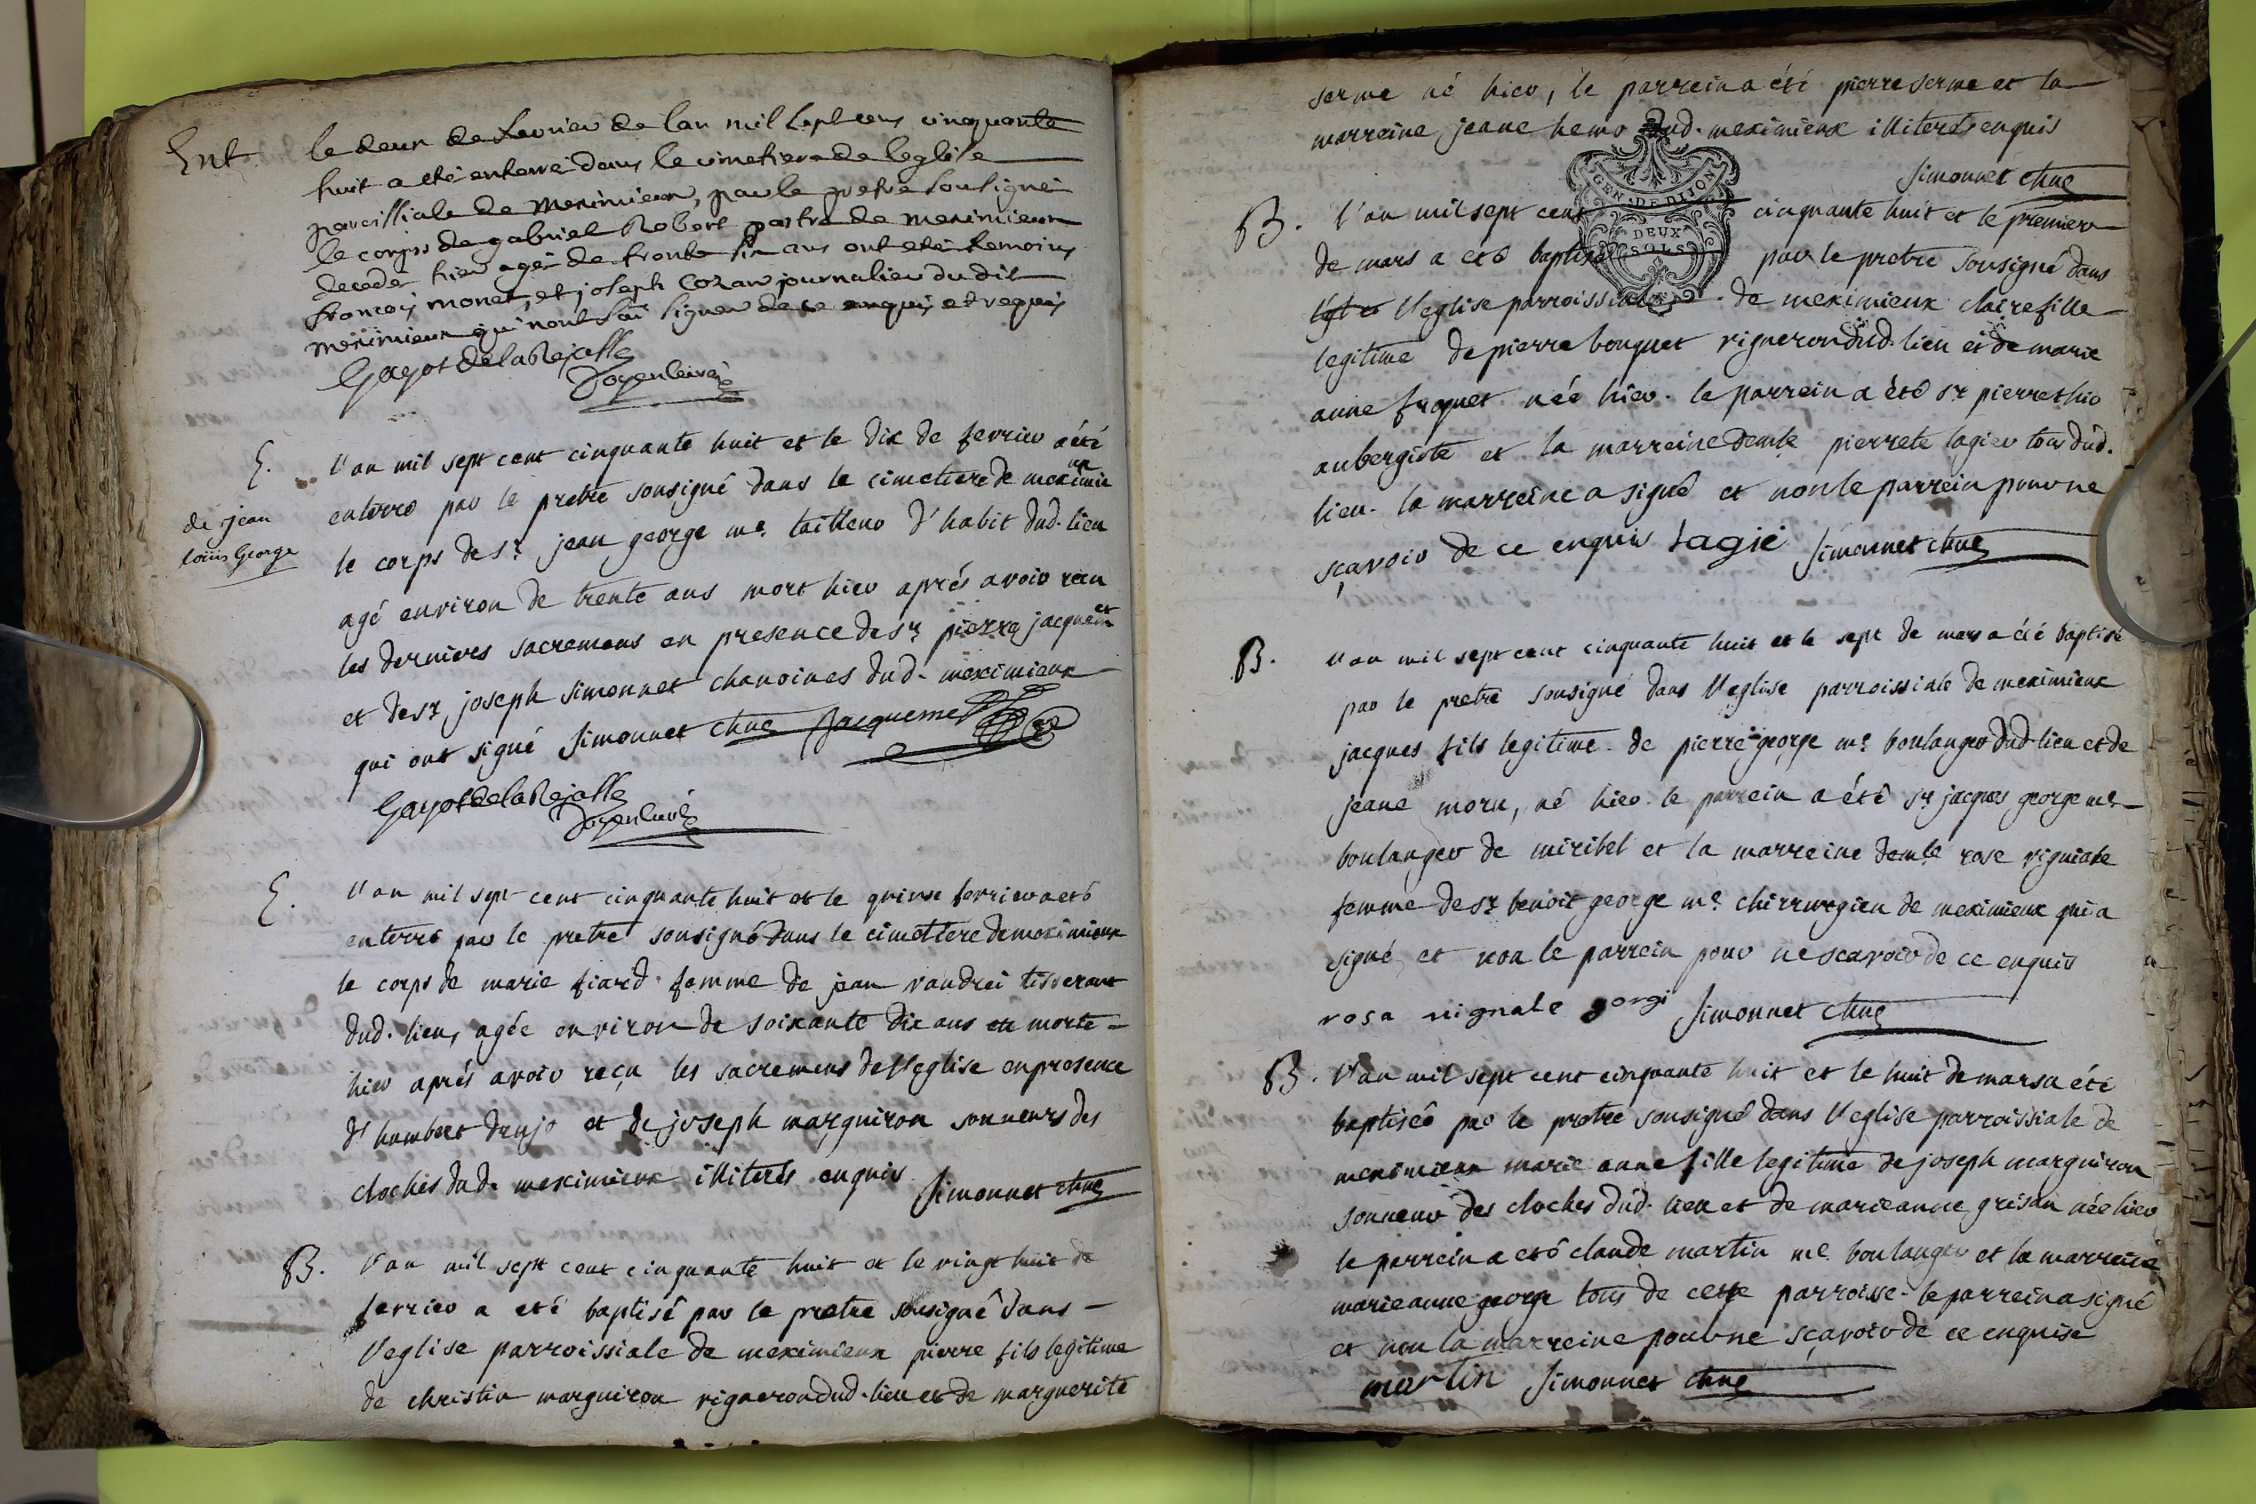 Ent. le deux de fevrier de lan mil sept cens cinquante
huit a eté enterré dans le cimetiere de leglise
paroissiale de Meximieux, par le pretre soussigné
le corps de gabriel Robert patre de meximieux
decedé hier agé de trente six ans ont eté temoins
francois monet, et joseph Cozar journalier du dit
meximieux qui nont sçu signer de ce enquis et requis
Gayot de la Rejasse
Doyen curé
E. l'an mil sept cent cinquante huit et le dix de fevrier a été
de jean
louis George
enterré par le pretre sousigné dans le cimetiere de meximieux
le corps de sr. jean george me. tailleur d'habit dud. lieu
agé environ de trente ans mort hier aprés avoir reçu
les derniers sacremens en presence de sr. pierre jacquemet
et de sr. joseph simonnet chanoines dud. meximieux
qui ont signé Simonnet chne Jacquemet
Gayot de la Rejasse
Doyen curé
E. l'an mil sept cent cinquante huit et le quinse fevrier a eté
enterré par le pretre sousigné dans le cimetiere de meximieux
le corps de marie fiard femme de jean vaudrei tisserant
dud. lieu, agée environ de soixante dix ans morte
hier aprés avoir reçu les sacremens de l'eglise en presence
d'humbert drujo et de joseph marguiron sonneurs des
cloches dud. meximieux illiterés enquis Simonnet chne
B. l'an mil sept cent cinquante huit et le vingt huit de
fevrier a eté baptisé par le pretre sousigné dans
l'eglise parroissiale de meximieux pierre fils legitime
de christin marguiron vigneron dud. lieu et de marguerite
serme né hier, le parrein a été pierre serme et la
marreine jeane hemo dud. meximieux illiterés enquis
Simonnet chne
GEN. DE DIJON
DEUX
SOLS
B. l'an mil sept cent cinquante huit et le premier
de mars a eté baptisé par le pretre sousigné dans
l'eglise parroissiale de meximieux claire fille
legitime de pierre bouquet vigneron dud. lieu et de marie
anne fuquet née hier. le parrein a été sr pierre thio
aubergiste et la marreine demle pierrete lagier tous dud.
lieu. la marreine a signé et non le parrein pour ne
sçavoir de ce enquis lagié Simonnet chne
B. l'an mil sept cent cinquante huit et le sept de mars a été baptisé
par le pretre sousigné dans l'eglise parroissiale de meximieux
jacques fils legitime de pierre george me. boulanger dud. lieu et de
jeane moru, né hier. le parrein a été sr. jacques george me.
boulanger de miribel et la marreine demle rose vignale
femme de sr. benoit george me. chirurgien de meximieux qui a
signé et non le parrein pour ne scavoir de ce enquis
rosa vignale gorgi Simonnet chne
B. l'an mil sept cent cinquante huit et le huit de mars a été
baptiséé par le pretre sousigné dans l'eglise parroissiale de
meximieux marie anne fille legitime de joseph marguiron
sonneur des cloches dud. lieu et de marie anne grisan née hier
le perrein a eté claude martin me. boulanger et la marreine
marie anne george tous de cette parroisse. le parrein a signé
et non la marreine pour ne sçavoir de ce enquise
martin Simonnet chne